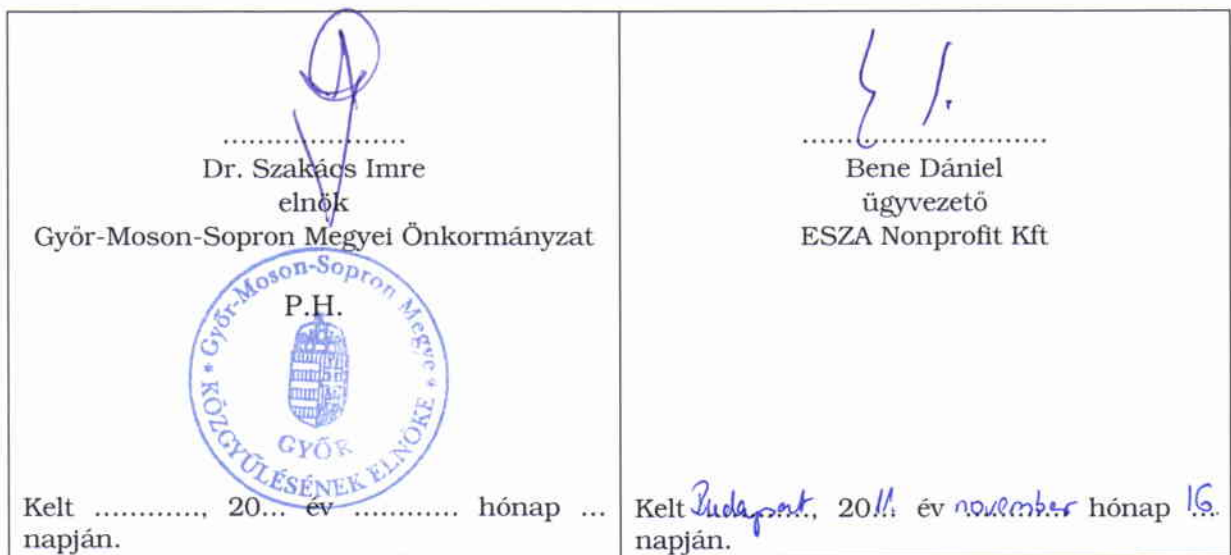 ....................
Dr. Szakács Imre
elnök
Győr-Moson-Sopron Megyei Önkormányzat
P.H.
* Győr-Moson-Sopron Megye *
KÖZGYŰLÉSÉNEK ELNÖKE
GYŐR
Kelt ............, 20... év ............ hónap ...
napján.
...........................
Bene Dániel
ügyvezető
ESZA Nonprofit Kft
Kelt Budapest, 2011 év november hónap 16
napján.